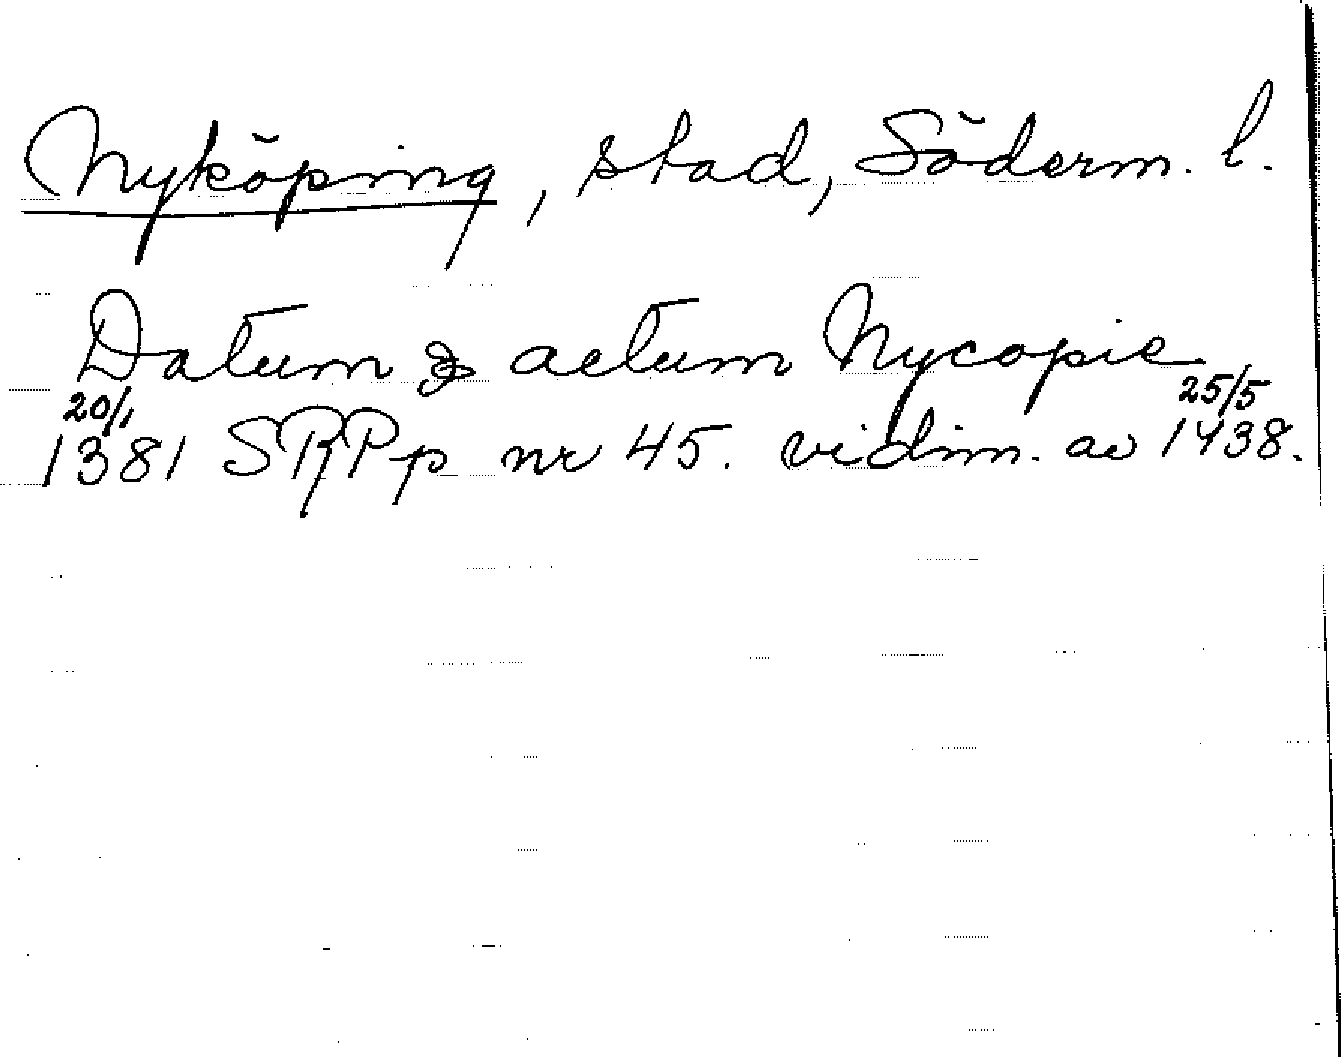 Nyköping, stad, Söderm. l.
Datum & actum Nycopie
20/1 25/5
1381 SRPp nr 45. vidim. av 1438.